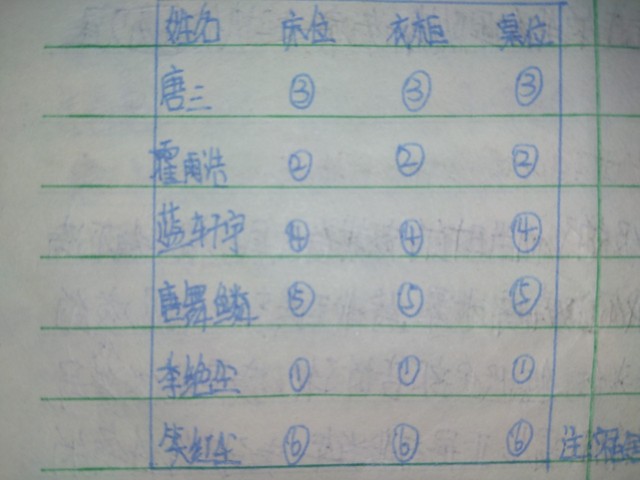 姓名 床位 衣柜 桌位
唐三 ③ ③ ③
霍雨浩 ② ② ②
蓝轩宇 ④ ④ ④
唐舞麟 ⑤ ⑤ ⑤
李绝尘 ① ① ①
笑红尘 ⑥ ⑥ ⑥ 注: